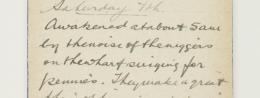 Saturday 7th.
Awakened at about 5 am
by the noise of the niggers
on the wharf singing for
pennies. They make a great